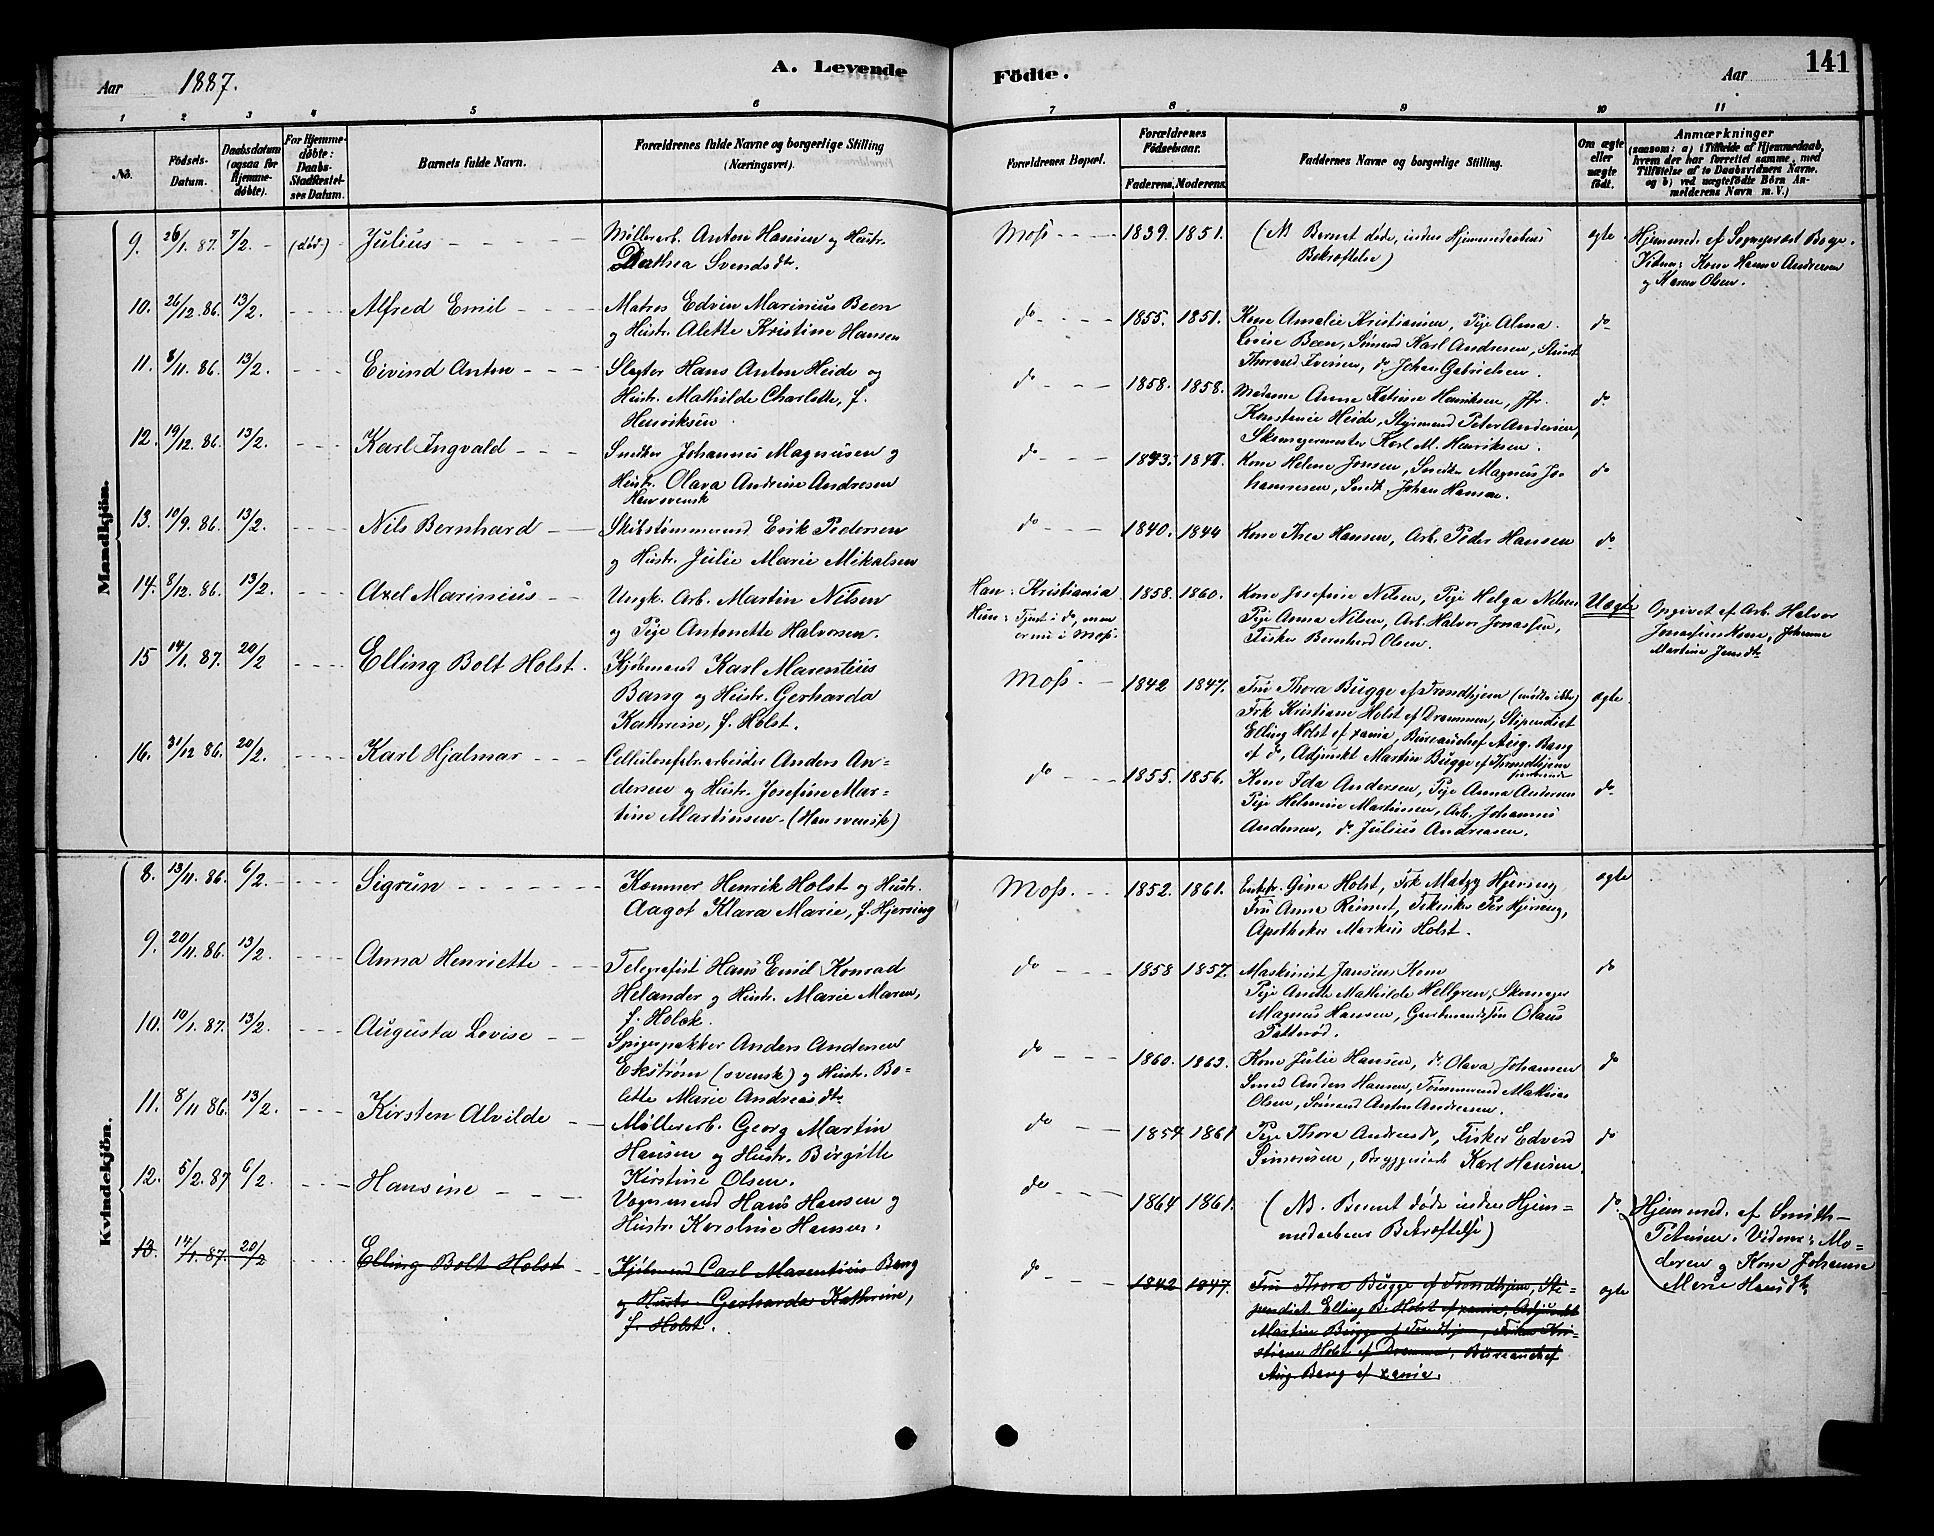 Aar 1887. A. Levende Födte. Aar 141
1 2 3 4 5 6 7 8 9 10 11
No.
Födsels-Datum.
Daabsdatum (ogsaa for Hjemmedöbte).
For Hjemmedöbte: Daabs-Stadfæstelses Datum.
Barnets fulde Navn.
Forældrenes fulde Navne og borgerlige Stilling (Næringsvei).
Forældrenes Bopæl.
Forældrenes Födselsaar.
Faderens. Moderens.
Faddernes Navne og borgerlige Stilling.
Om ægte eller uægte födt.
Anmærkninger
(saasom: a) i Tilfælde af Hjemmedaab,
hvem der har forrettet samme, med
Tilföielse af to Daabsvidners Navne.
og b) ved uægtefödte Börn Anmelderens Navn m. V.)
Mandkjön.
9. 26/1. 87. 7/2. (död) Julius
Möllerarb. Anton Hansen og Hustr.
Dorthea Svendsdt.
Moss 1839. 1851.
(NB Barnet döde, inden Hjemmedaabens
Bekræftelse)
ægte
Hjemmed. af Sogneprest Boye.
Vidner: Kone Hanne Andresen
og Karen Olsen.
10. 26/12. 86. 13/2. Alfred Emil
Matros Edvin Marinius Been
og Hustr. Alette Kristine Hansen
do 1855. 1851.
Kone Amalie Kristiansen, Pige Alma
Lovise Been, Sömand Karl Andresen,
Thorvald Iversen, do Johan Gabrielsen.
do
11. 8/11. 86. 13/2. Eivind Anton
Slagter Hans Anton Heide og
Hustr. Mathilde Charlotte, f.
Henriksen
do 1858. 1858.
Madame Anne Katrine Henriksen, Jfr.
Konstance Heide, Styrmand Peter Andersen,
Skomagermester Karl M. Henriksen.
do
12. 19/12. 86. 13/2. Karl Ingvald
Snedker Johannes Magnusen og
Hustr. Olava Andrine Andresen
Han svensk
do 1843. 1848.
Kone Helene Jonsen, Snedker Magnus Johannesen, Snedk. Johan Hansen.
do
13. 10/9. 86. 13/2. Nils Bernhard
Skibstömmermd Erik Pedersen
og Hustr. Julie Marie Mikalsen
do 1840. 1844
Kone Thea Hansen, Arb. Peder Hansen
do
14. 8/12. 86. 13/2. Axel Marinius
Ungk. Arb. Martin Nilsen
og Pige Antonette Halvorsen.
Han: Kristiania
Hun: Tjent i do, men
er nu i Moss.
1858. 1860.
Kone Josefine Nilsen, Pige Helga Nilsen
Pige Anna Nilsen, Arb. Halvor Jonassen,
Fisker Bernhard Olsen.
Uægte
Opgivet af Arb. Halvor
Jonassens Kone, Johanne
Martine Jensdt.
15 14/1. 87. 20/2 Elling Bolt Holst.
Kjöbmand Karl Marentius
Bang og Hustr. Gerharda
Kathrine, f. Holst.
Moss. 1842 1847.
Fru Thora Bugge af Trondhjem (mödte ikke)
Frk Kristiane Holst af Drammen, Stipendiat
Elling Holst af xania, Bureauchef Aug. Bang
af do, Adjunkt Martin Bugge af Throndhjem
fraværende
ægte
16. 31/12 86. 20/2. Karl Hjalmar
Cellulosefabr.arbeider Anders Andersen og Hustr. Josefine Martine Martinsen. (Han svensk)
do 1855. 1856.
Kone Ida Andersen, Pige Anna Andersen
Pige Helmine Martinsen, Arb. Johannes
Andersen, do Julius Andreasen.
do
Kvindekjön.
8. 13/11. 86. 6/2. Sigrun
Kömner Henrik Holst og Hustr.
Aagot Klara Marie, f. Hjersing
Moss. 1852. 1861.
Enkefr. Gina Holst, Frk Matzy Hjersing
Fru Anna Reimet, Tekniker Per Hjersing,
Apotheker Markus Holst.
ægte
9. 20/11. 86. 13/2. Anna Henriette
Telegrafist Hans Emil Konrad
Helander og Hustr. Marie Maren,
f. Holck.
do 1858 1857.
Maskinist Jansens Kone
Pige Anette Mathilde Hellgren, Skomager
Magnus Hansen, Gaardmandssön Olaus
Patteröd.
do
10. 10/1. 87. 13/2. Augusta Lovise
Spigerpakker Anders Andersen
Ekström (svensk) og Hustr. Bolette Marie Andreasdt.
do 1860. 1863.
Kone Julie Hansen, do Olava Johansen
Smed Anders Hansen, Tömmermd Mathias
Olsen, Sömand Anton Andresen.
do
11. 8/11 86. 13/2. Kirsten Alvilde
Möllerarb. Georg Martin
Hansen og Hustr. Birgitte
Kirstine Olsen.
do 1854 1861
Pige Thora Andreasdt., Fisker Edvard
Simonsen, Bryggeriarb Karl Hansen.
do
12. 5/2. 87 6/2. Hansine
Vognmand Hans Hansen og
Hustr. Karoline Hansen.
do 1864 1861.
(NB. Barnet döde inden Hjemmedaabens Bekræftelse)
do
Hjemmed. af Smith-
Petersen. Vidner: Moderen og Kone Johanne
Marie Hansdt.
13. 14/1. 87. 20/2 Elling Bolt Holst
Kjöbmand Carl Marentius Bang
og Hustr. Gerharda Kathrine,
f. Holst.
do 1842 1847.
Fru Thora Bugge af Trondhjem, Stipendiat Elling B. Holst af xania, Adjunkt
Martin Bugge af Trondhjem, Frøken Kristiane Holst af Drammen, Bureauchef
Aug. Bang af xania.
ægte